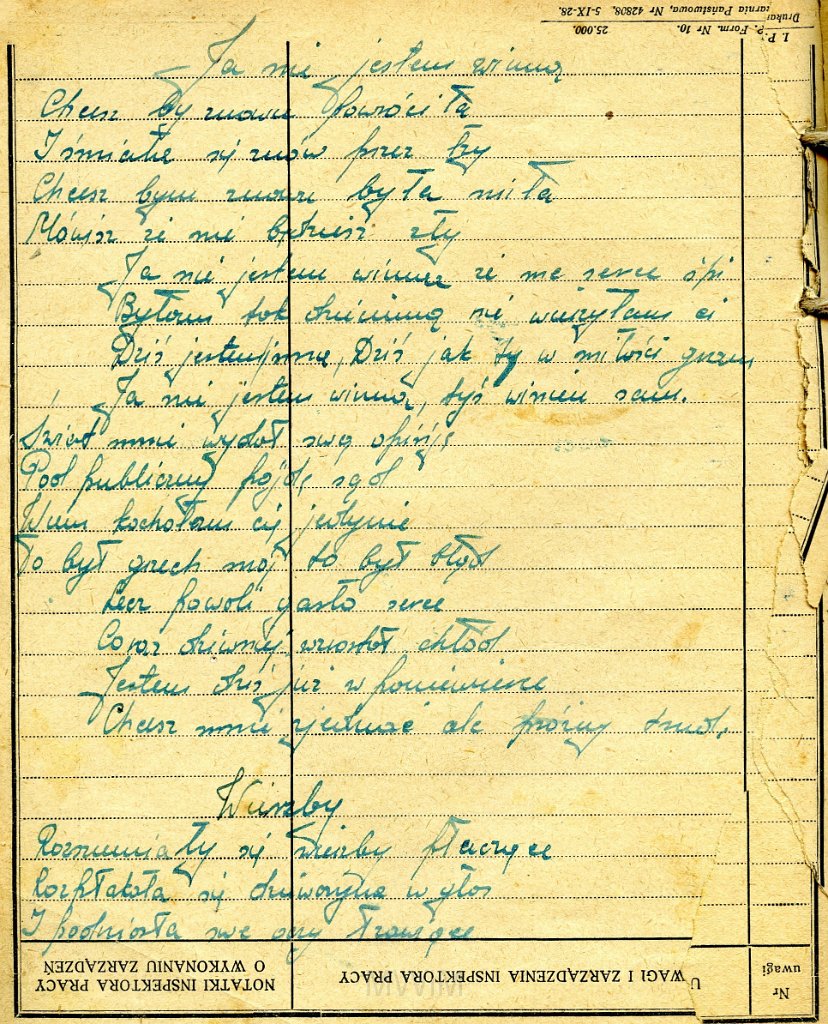 I. P. P. Form. Nr 10. 25.000.
Drukarnia Państwowa, Nr 42808. 5-IX-28.
Ja nie jestem winną
Chcesz by znowu powróciła
I śmiała się znów przez łzy
Chcesz bym znowu była miła
Mówisz że nie będziesz zły
Ja nie jestem winną że me serce śpi
Byłam tak dziecinną nie wierzyłam ci
Dziś jestem inną, Dziś jak ty w miłości gram
Ja nie jestem winną, tyś winien sam.
Świat mnie wydał swą opinję
Pod publiczny pójdę sąd
Wiem kochałam cię jedynie
To był grzech mój to był błąd
Lecz powoli gasło serce
Coraz dziwnej wzrastał chłód
Jestem dziś już w poniewierce
Chcesz mnie zjednać ale próżny trud.
Wierzby
Rozszumiały się wierzby płaczące
Rozpłakała się dziewczyna w głos
I podniosła swe oczy łzawiące
NOTATKI INSPEKTORA PRACY O WYKONANIU ZARZĄDZEŃ
UWAGI I ZARZĄDZENIA INSPEKTORA PRACY
Nr uwagi